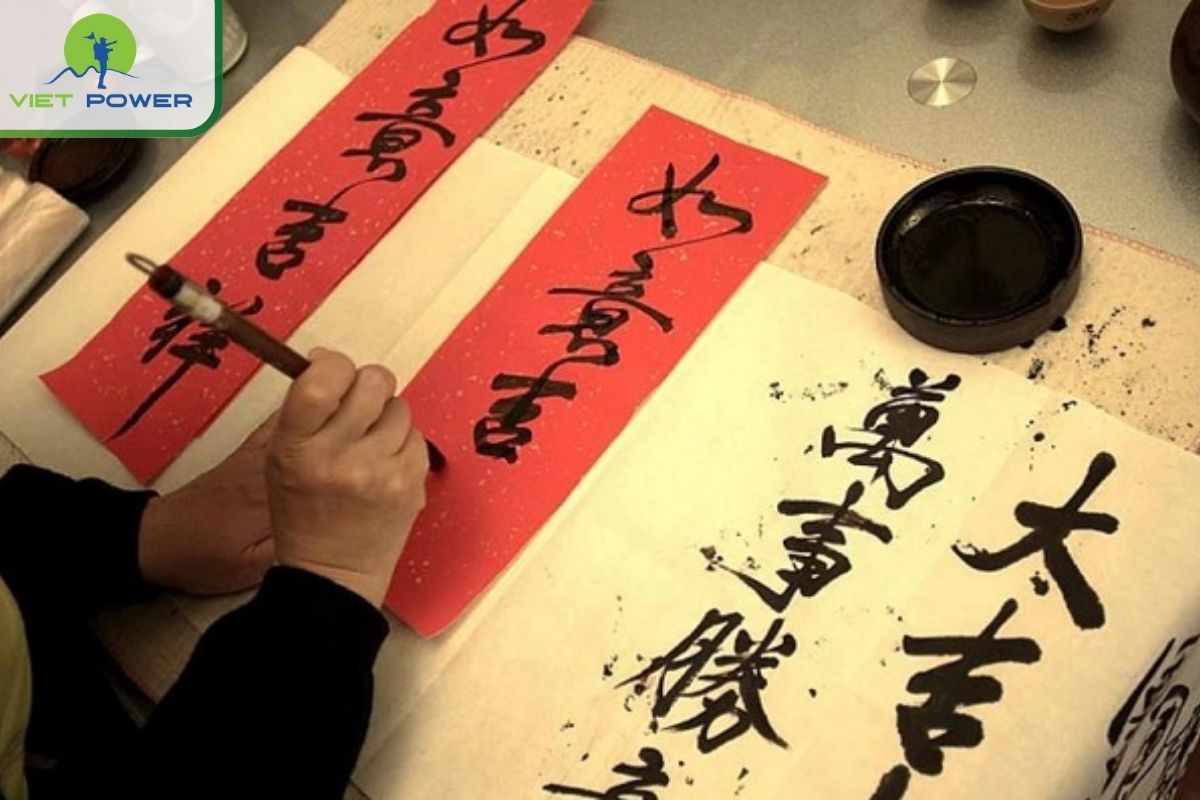 VIET POWER
如意吉祥
如意吉
大吉
萬事勝